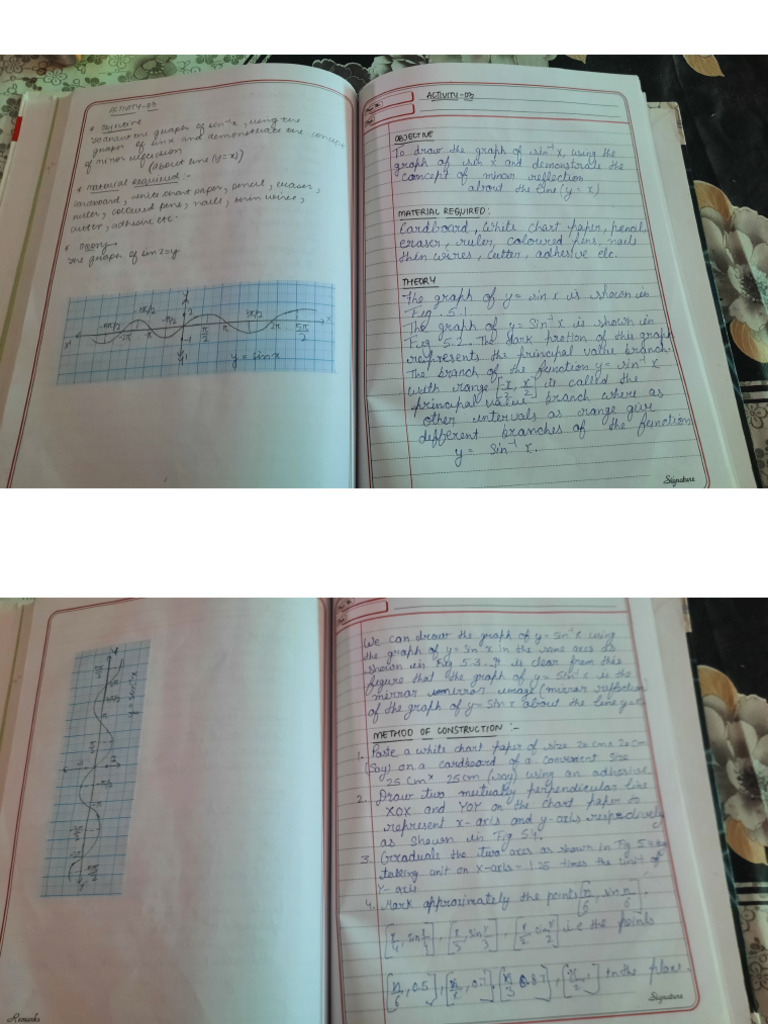 ACTIVITY-03
* OBJECTIVE
To draw the graph of sin⁻¹x, using the
graph of sin x and demonstrate the concept
of mirror reflection
(about line (y=x))
* Material Required :-
Cardboard, white chart paper, pencil, eraser,
ruler, coloured pens, nails, thin wires,
cutter, adhesive etc.
* Theory
The graph of sin x = y
y = sin x
ACTIVITY-03
OBJECTIVE
To draw the graph of sin⁻¹ x, using the
graph of sin x and demonstrate the
concept of mirror reflection
about the line (y = x)
MATERIAL REQUIRED :
Cardboard, White chart paper, pencil
eraser, ruler, coloured pens, nails
thin wires, cutter, adhesive etc.
THEORY
The graph of y = sin x is shown in
Fig. 5.1
The graph of y = Sin⁻¹ x is shown in
Fig 5.2. The dark protion of this graph
represents the principal value branch.
The branch of the function y = sin⁻¹ x
with range [-x/2, x/2] is called the
principal value branch where as
other intervals as range give
different branches of the function
y = Sin⁻¹ x.
Signature
y = sin⁻¹x
Remarks
We can draw the graph of y = Sin⁻¹x using
the graph of y = Sin⁻¹x in the same axes as
shown in Fig 5.3. It is clear from this
figure that the graph of y = Sin⁻¹x is the
mirror image (mirror reflection
of the graph of y = Sin x about the line y=x
METHOD OF CONSTRUCTION :-
1. Paste a white chart paper of size 20 cm x 20 cm
(Say) on a cardboard of a convenient size
25 Cm x 25 cm (say) using an adhesive
2. Draw two mutually perpendicular line
XOX and YOY on the chart paper to
represent x-axis and y-axis respectively
as Shown in Fig 5.4.
3. Graduate the two axes as shown in Fig 5.4 by
taking unit on X-axis = 1.25 times the unit of
Y-axis
4. Mark approximately the points [π/6, sin π/6],
[π/4, sin π/4], [π/3, sin π/3], [π/2, sin π/2] i.e the points
[π/6, 0.5], [0.7], [π/3, 0.87], [π/2, 1] in the plane.
Signature